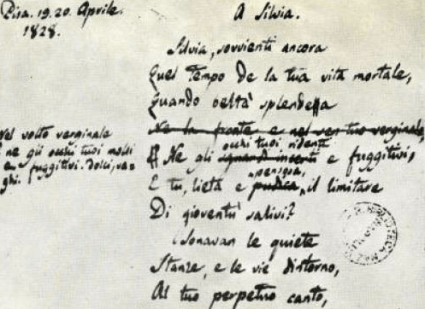 Pisa. 19. 20. Aprile.
1828.
A Silvia.
Silvia, sovvienti ancora
Quel tempo de la tua vita mortale,
Quando beltà splendea
Ne la fronte e nel sen tuo verginale,
Nel volto verginale
ne gli occhi tuoi molli
e fuggitivi. dolci, va-
ghi.
occhi tuoi ridenti
Ne gli sguardi incerti e fuggitivi,
pensosa,
E tu, lieta e pudica, il limitare
Di gioventù salivi?
Sonavan le quiete
Stanze, e le vie dintorno,
Al tuo perpetuo canto,